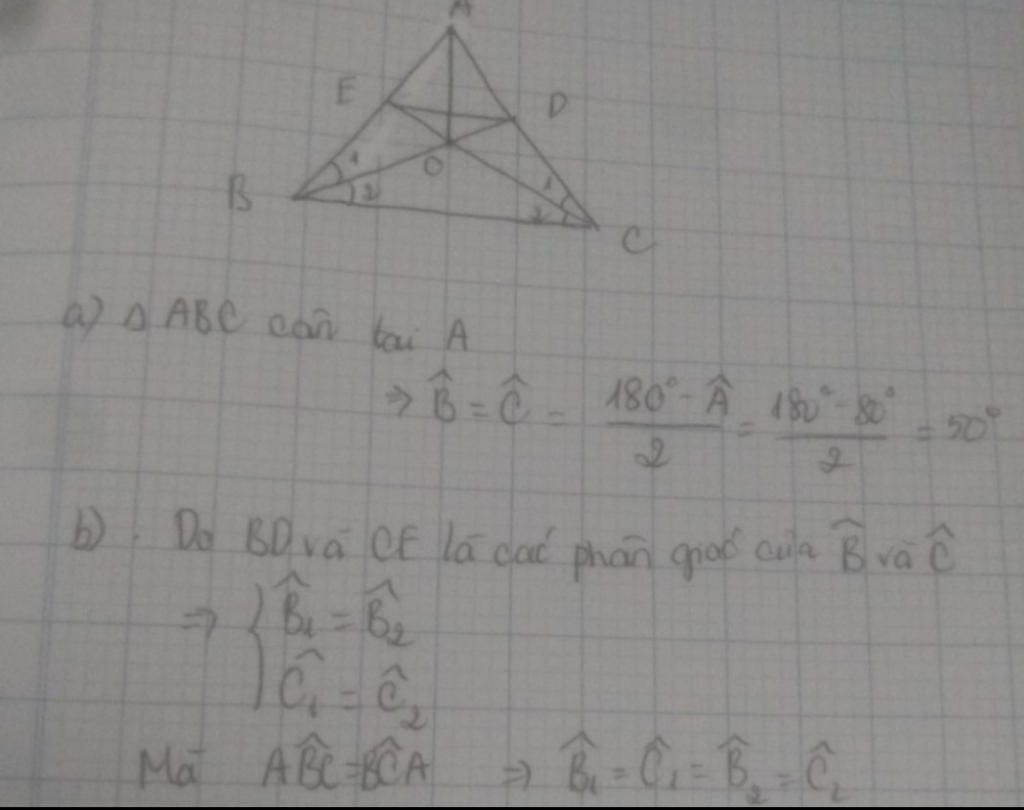 A
E D
1 O 1
B 2 2
C
a) Δ ABC cân tại A
⇒ B̂ = Ĉ = (180° - Â)/2 = (180° - 80°)/2 = 50°
b) . Do BD và CE là các phân giác của B̂ và Ĉ
⇒ { B̂₁ = B̂₂
Ĉ₁ = Ĉ₂
Mà AB̂C = BĈA ⇒ B̂₁ = Ĉ₁ = B̂₂ = Ĉ₂